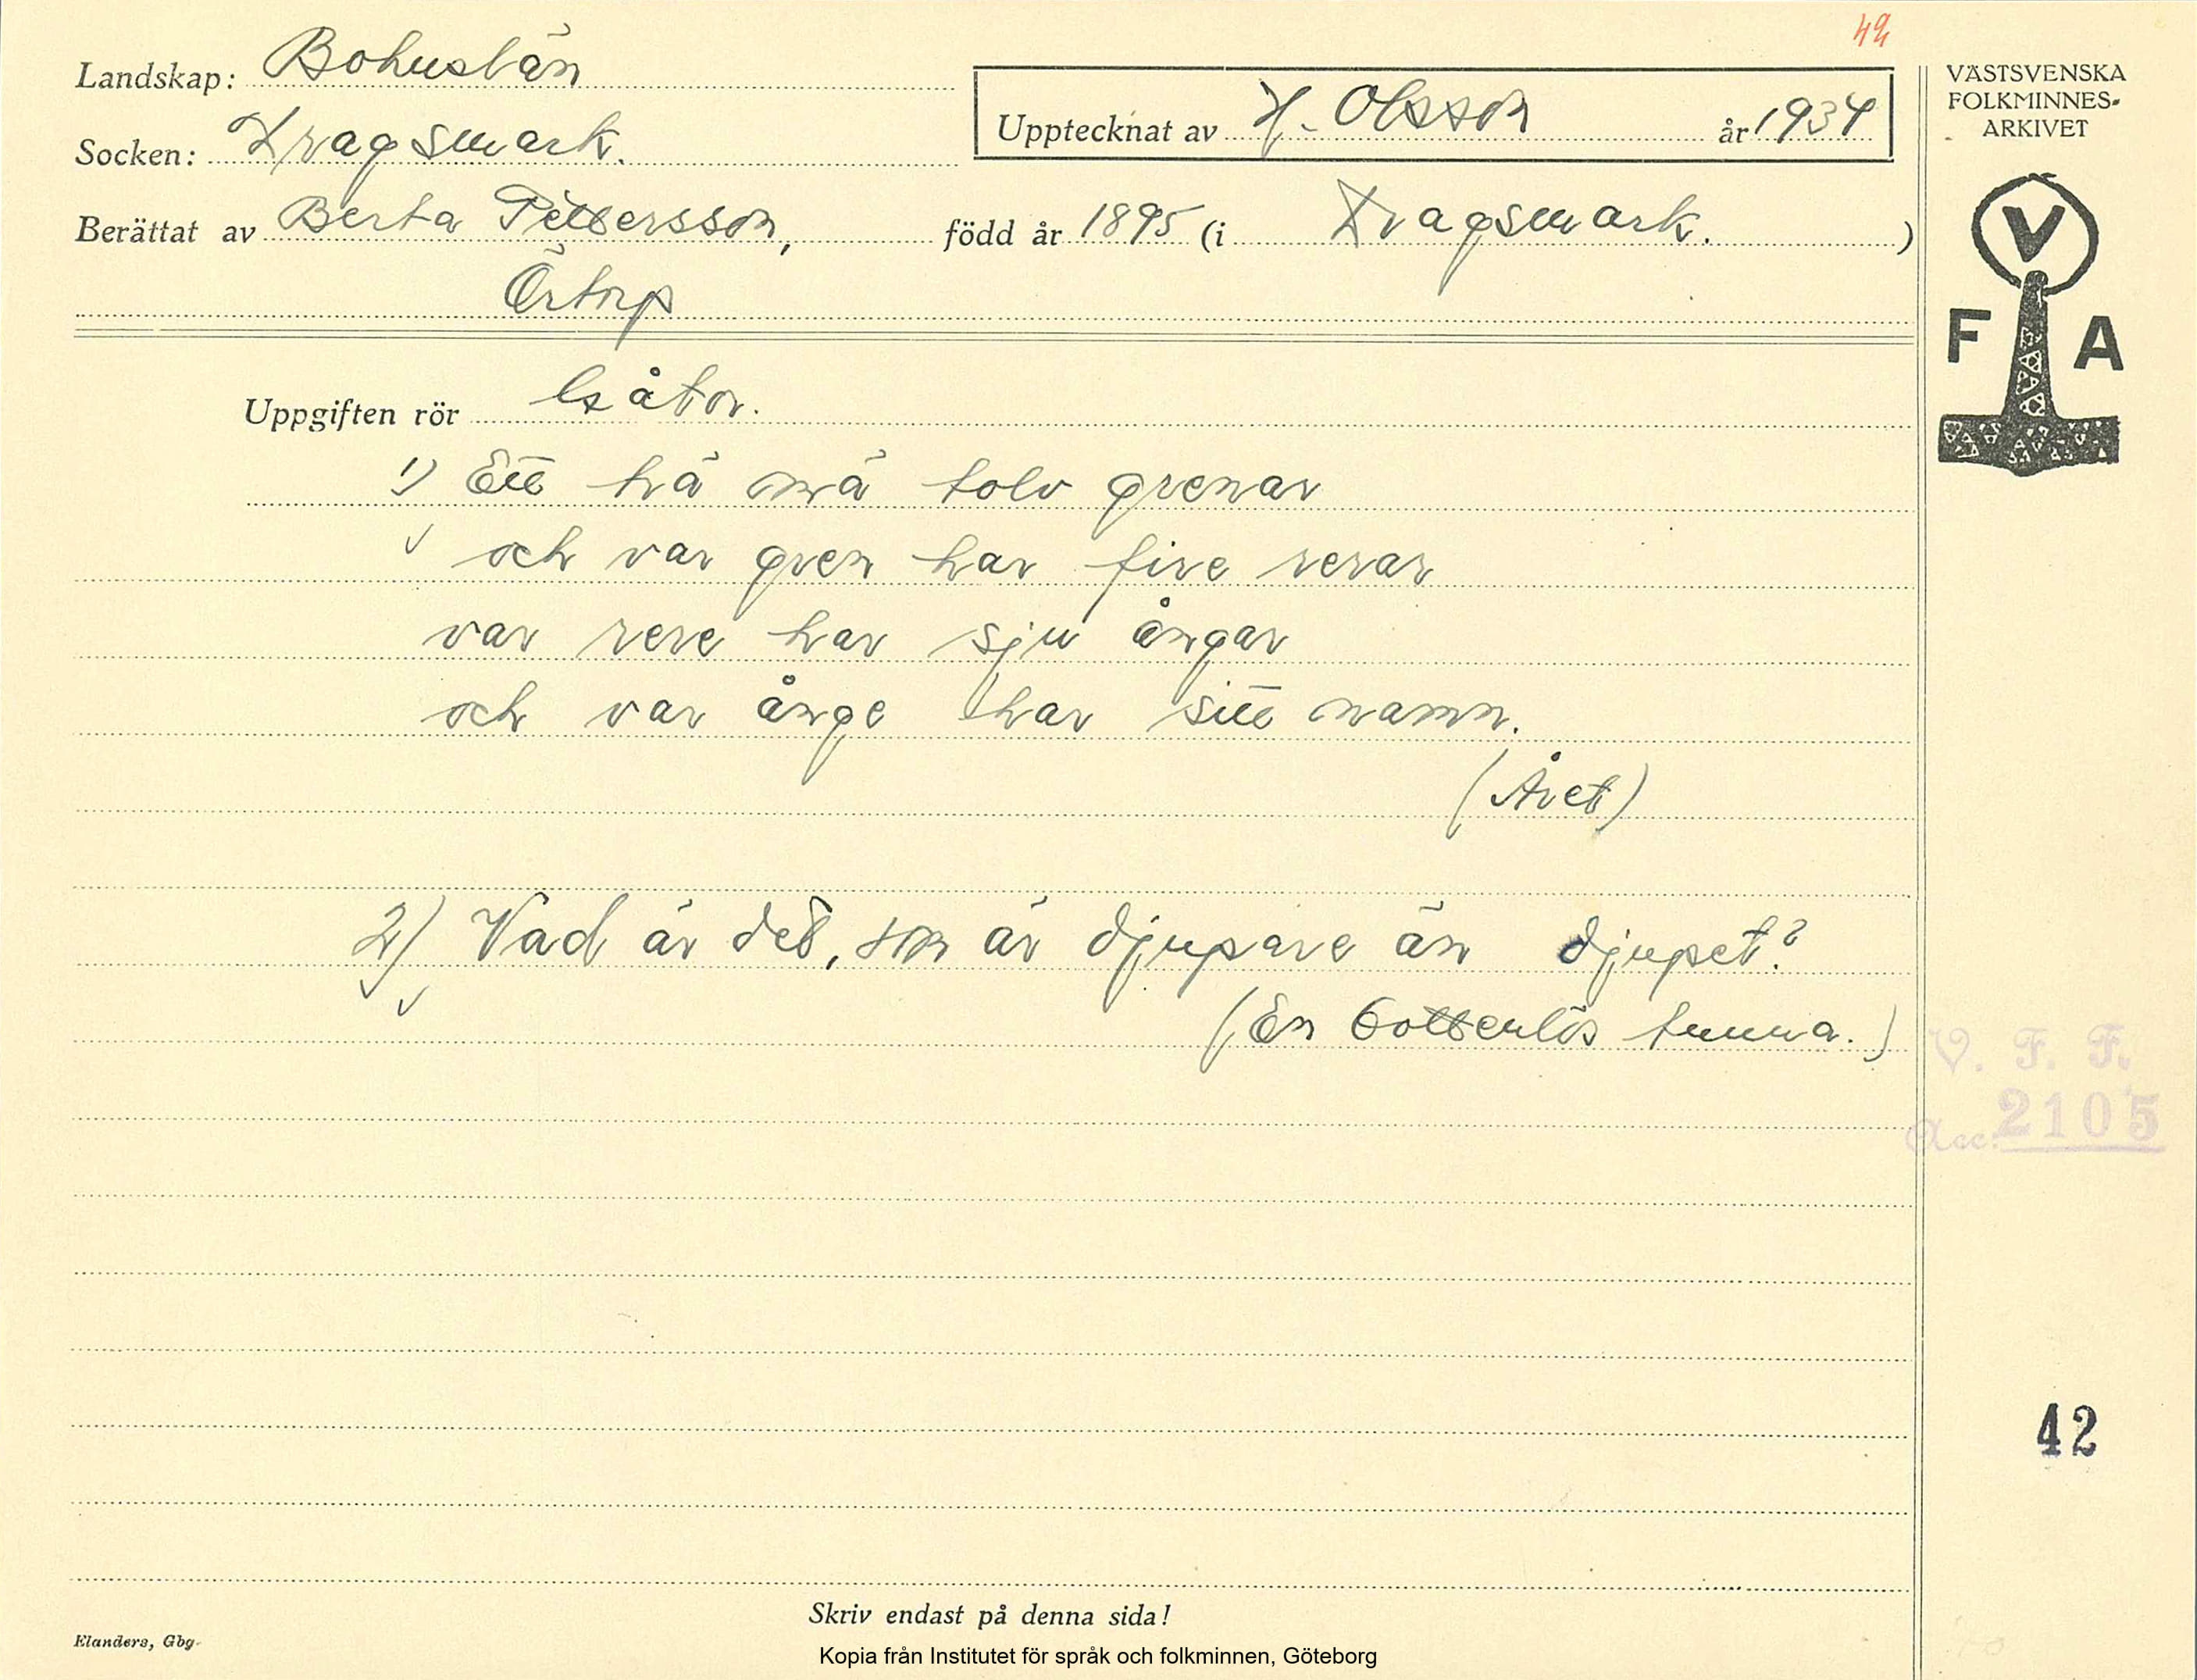 42
Landskap: Bohuslän
Socken: Dragsmark.
Upptecknat av H. Olsson år 1934
Berättat av Berta Pettersson, född år 1895 (i Dragsmark.)
Örtorp
Uppgiften rör Gåtor.
1) Ett trä mä tolv grenar
och var gren har fire rerar
var rere har sju ångar
och var ånge har sitt namn.
(Året)
2) Vad är det, som är djupare än djupet?
(En bottenlös tunna.)
Skriv endast på denna sida!
Elanders, Gbg
Kopia från Institutet för språk och folkminnen, Göteborg
VÄSTSVENSKA
FOLKMINNES-
ARKIVET
V
F A
V. F. F.
Acc. 2105
42